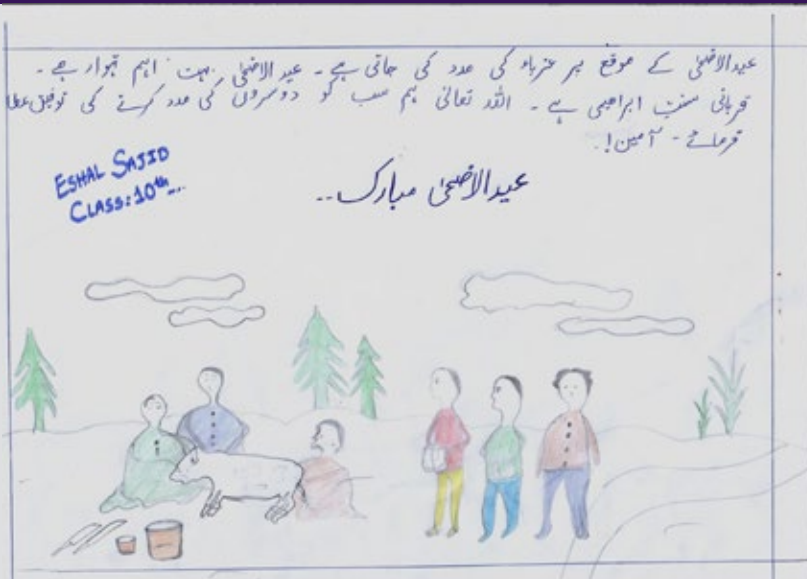 عیدالاضحیٰ کے موقع پر غرباء کی مدد کی جاتی ہے۔ عیدالاضحیٰ بہت اہم تہوار ہے۔
قربانی سنتِ ابراہیمی ہے۔ اللہ تعالیٰ ہم سب کو دوسروں کی مدد کرنے کی توفیق عطا
فرمائے۔ آمین!۔
ESHAL SAJID
CLASS: 10th...
عیدالاضحیٰ مبارک..